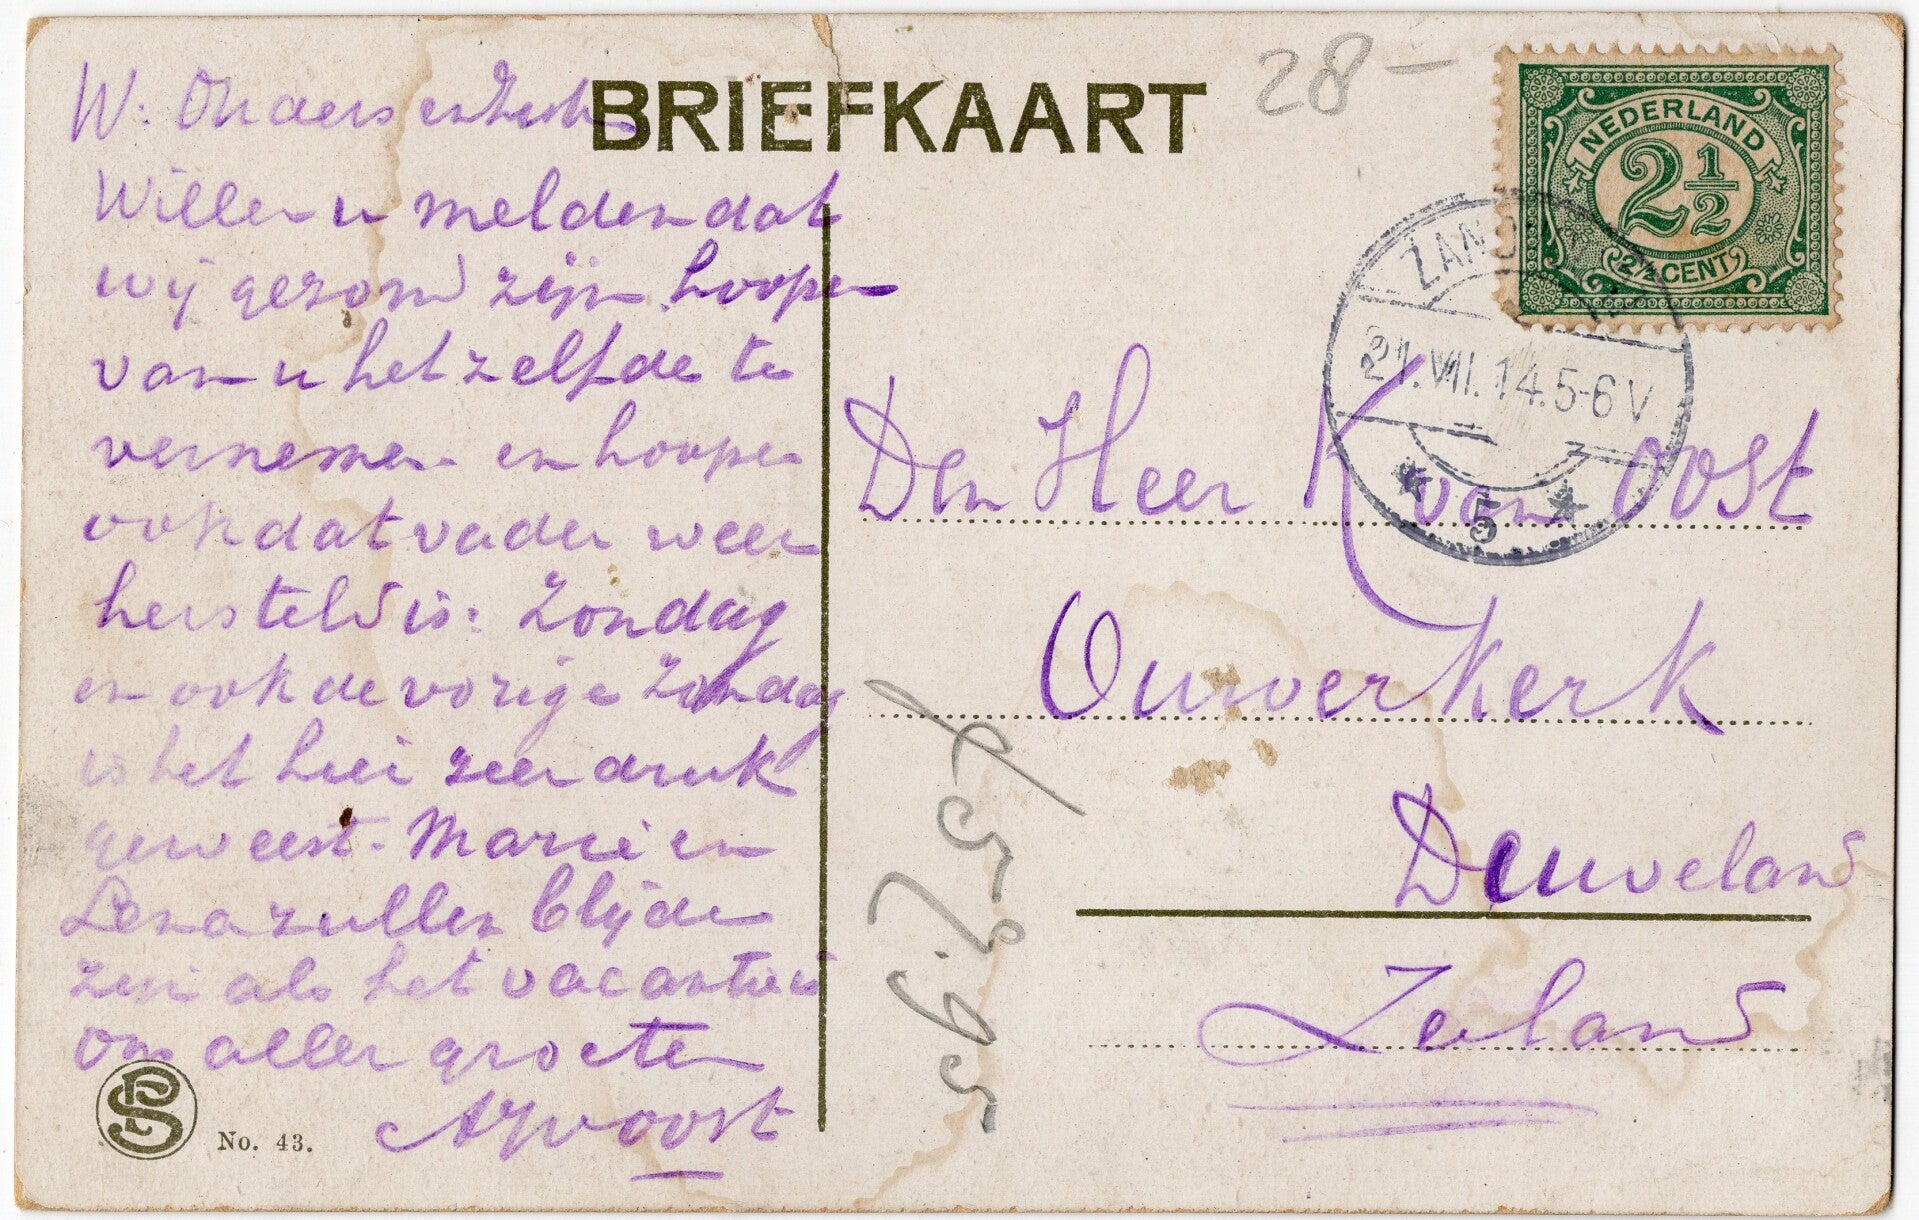 BRIEFKAART
28 -
NEDERLAND
2 1/2
2 1/2 CENT
21.VII.14.5-6 V
5
W. Ouders en
Willen u melden dat
wij gezond zijn hoopen
van u het zelfde te
vernemen en hoopen
ook dat vader weer
hersteld is: Zondag
en ook de vorige Zondag
is het hier zeer druk
geweest. Marie en
Lena zullen blijde
zijn als het vacantie is
Ons aller groeten
AJvoost
Den Heer K van Oost
Ouwerkerk
Duuveland
Zeeland
PS
No. 43.